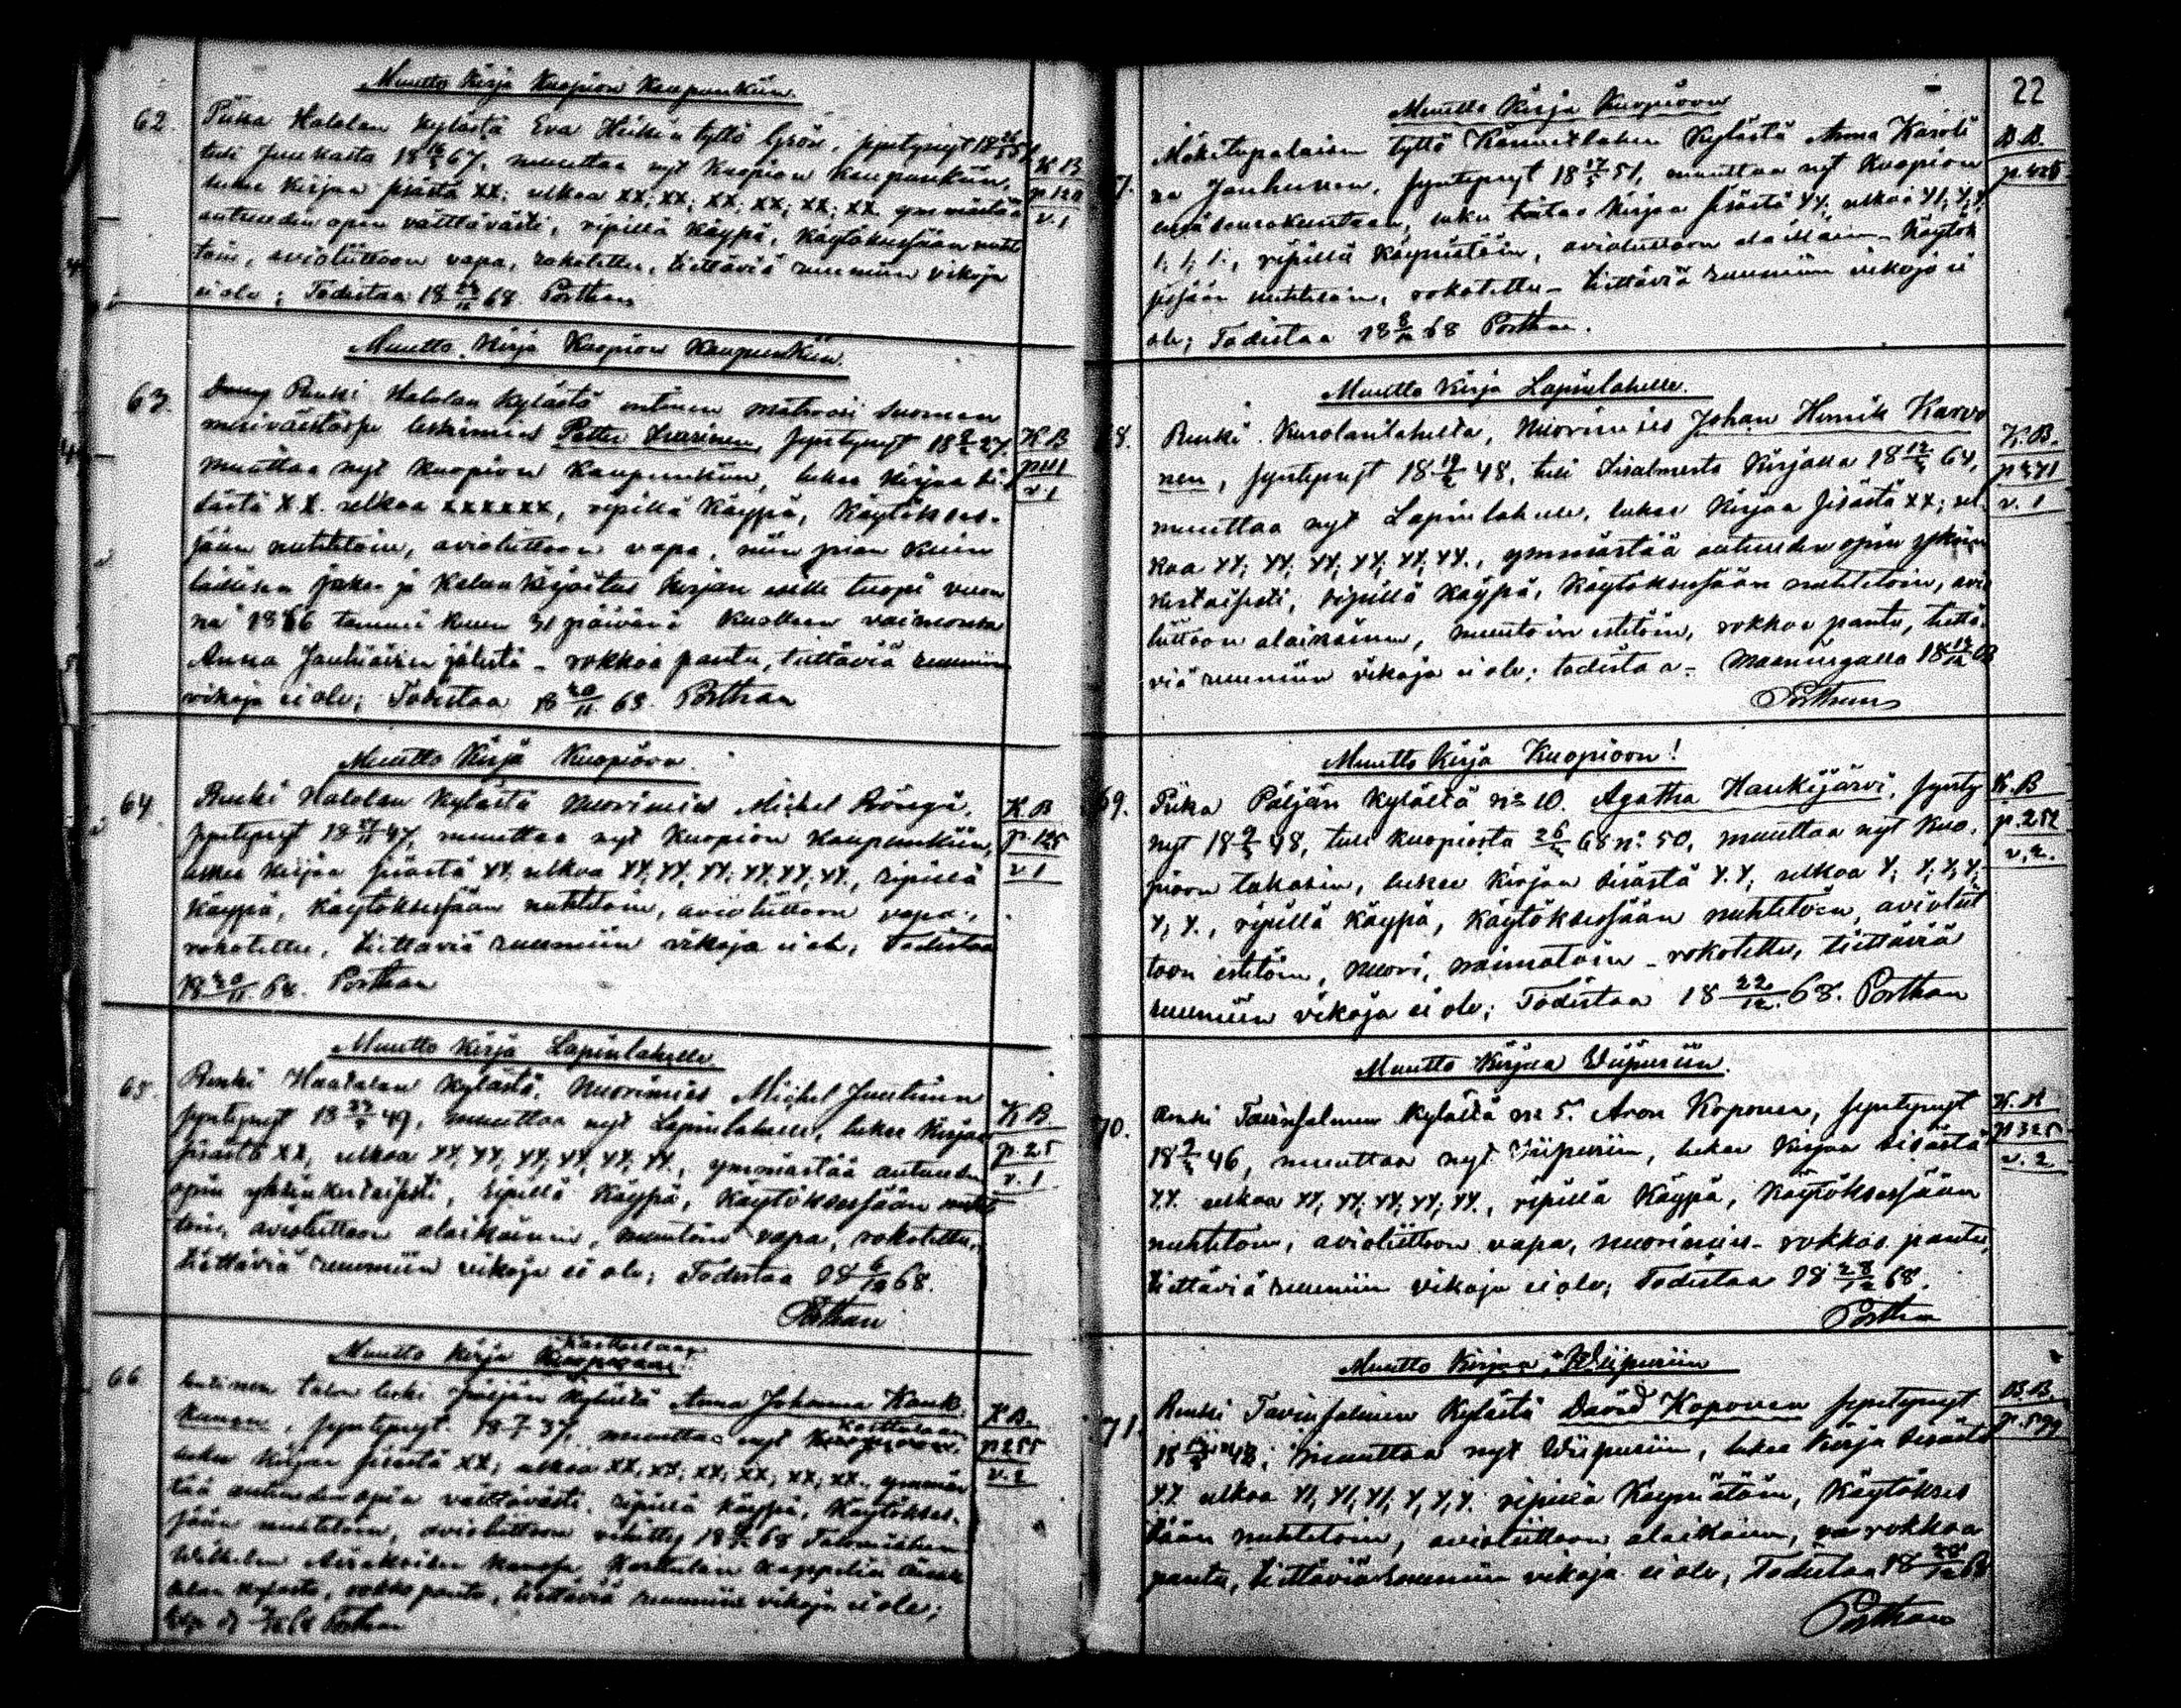 Muutto Kirja Kuopion Kaupunkiin.
62. Piika Halolan Kylästä Eva Heikin tyttö Grön, syntynyt 18
tuli Juukasta 18 67, muuttaa nyt Kuopion Kaupunkiin,
lukee kirjaa sisästä XX; ulkoa XX; XX; XX; XX; XX; XX. ymmärtää
autuuden opin välttävästi, ripillä käypä, käytöksessään nuhte
toin, avioliittoon vapa, rokotettu, tiettäviä ruumiin vikoja
ei ole; Todistaa 18 68. Porthan
K B
p. 120
v. 1
Muutto Kirja Kuopion Kaupunkiin.
63. Renki Halolan Kylästä entinen matroosi Suomen
meriväestössä leskimies Petter , syntynyt 18 27.
muuttaa nyt Kuopion Kaupunkiin, lukee Kirjaa si-
sästä X X. ulkoa xxxxxx, ripillä Käypä, Käytökses-
sään nuhtetoin, avioliittoon vapa, niin pian kuin
laillisen jako ja Kalun kirjoitus kirjan esille tuopi vuon
na 1866 tammi kuun 31 päivänä Kuolleen vaimonsa
Anna Jauhiaisen jälestä - rokkoa pantu, tiettäviä ruumiin
vikoja ei ole; Todistaa 18 20/11 68. Porthan
K B
v. 1
Muutto Kirja Kuopioon.
64. Renki Halolan Kylästä Nuorimies Michel
syntynyt 18 47, muuttaa nyt Kuopion Kaupunkiin,
lukee Kirjaa sisästä YY. ulkoa YY, YY, YY; YY, YY, YY., ripillä
käypä, käytöksessään nuhtetoin, avioliittoon vapa.,
rokotettu, tiettäviä ruumiin vikoja ei ole, Todistaa
18 20/11 68. Porthan
K B
p. 125
v 1
Muutto Kirja Lapinlahelle.
65. Renki Haatalan Kylästä, Nuorimies Michel Juutinen
syntynyt 18 49, muuttaa nyt Lapinlahelle, lukee kirjaa
sisästä XX, ulkoa YY, YY, YY, YY, YY, YY., ymmärtää autuuden
opin yhsinkertaisesti, ripillä Käypä, Käytöksessään nuhte
toin, avioliittoon alaikäinen, muutoin vapa, rokotettu,
tiettäviä ruumiin vikoja ei ole; Todistaa 18 6/12 68.
Porthan
K B.
p. 25
v. 1
Karttulaan
Muutto kirja Kuopioon!
66 Entinen talon leski Päljän Kylästä Anna Johanna Kauk
kunen, syntynyt 18 37, muuttaa nyt Karttulaan Kuopioon.
lukee Kirjaa sisästä XX; ulkoa XX, XX; XX; XX; XX; XX., ymmär
tää autuuden opin välttävästi, ripillä käypä, Käytökses-
sään nuhtetoin, avioliittoon vihitty 18 68 Talonmiehen
Wilhelm kanssa, Karttulan Kappelin
Kylästä, rokko pantu, tiettäviä ruumiin vikoja ei ole;
68 Porthan
K B.
p 255
v. 2
22
Muutto Kirja Kuopioon
7. Mäkitupalaisen tyttö Känneislahen Kylästä Anna Karoli
na Jauhunen, syntynyt 18 51, muuttaa nyt Kuopion
maaseurakuntaan, lukee taitaa kirjaa sisästä YY., ulkoa Y1, Y, Y,
1, 1, 1., ripillä Käymätöin, avioliittoon alaikäinen - Käytök
sessään nuhtetoin, rokotettu - tiettäviä ruumiin vikoja ei
ole; Todistaa 18 68 Porthan.
B. B.
Muutto Kirja Lapinlahelle.
8. Renki Kurolanlahelta, Nuorimies Johan Henrik Karvo
nen, syntynyt 18 48, tuli Iisalmesta Kirjalla 18 64,
muuttaa nyt Lapinlahelle, lukee Kirjaa sisästä XX; ul
koa YY; YY, YY; YY, YY, YY., ymmärtää autuuden opin yhsin
kertaisesti, ripillä käypä, Käytöksessään nuhtetoin, avio
liittoon alaikäinen, muutoin estetöin, rokkoa pantu, tiettä
viä ruumiin vikoja ei ole; todistaa - Maaningalla 18 68
Porthan
K. B.
p 371
v. 1
Muutto Kirja Kuopioon!
69. Piika Päljän Kylästä n:o 10. Agatha Haukijärvi, synty
nyt 18 48, tuli Kuopiosta 68 n:o 50, muuttaa nyt Kuo-
pioon takasin, lukee kirjaa sisästä Y.Y; ulkoa Y; Y; Y, Y;
Y, Y., ripillä käypä, Käytöksessään nuhtetoin, avioliit
toon estetöin, Nuori, naimatoin - rokotettu, tiettäviä
ruumiin vikoja ei ole; Todistaa 18 22/12 68. Porthan
K. B
p. 252
v. 2.
Muutto Kirjaa Wiipuriin.
70. Renki Tavinsalmen Kylästä n:o 5. Aron Koponen, syntynyt
18 46, muuttaa nyt Wiipuriin, lukee Kirjaa sisästä
YY. ulkoa YY, YY, YY, YY, YY., ripillä Käypä, Käytöksessään
nuhtetoin, avioliittoon vapa, nuorimies - rokkoa pantu,
tiettäviä ruumiin vikoja ei ole; Todistaa 18 28/12 68.
Porthan
p 325
v. 2
Muutto Kirjaa Wiipuriin
71. Renki Tavinsalmen Kylästä David Koponen syntynyt
18 48; muuttaa nyt Wiipuriin, lukee Kirja sisästä
Y.Y. ulkoa Y1, Y1, Y1, Y, Y, Y. ripillä Käymätöin, Käytökses
sään nuhtetoin, avioliittoon alaikäinen, rokkoa
pantu, tiettäviä ruumiin vikoja ei ole, Todistaa 18 28/12 68
Porthan
B. B.
p. 599